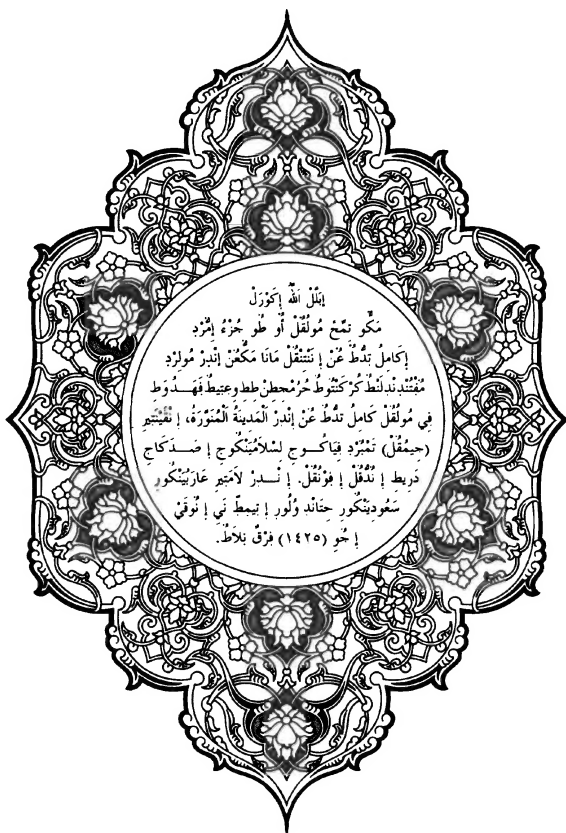 إِبَلَلْ اللَّهُ إِكَوْرَلْ
مَكُّو نِمِّحْ مُولُقُلْ أَو طُو جُزْءُ إِمُّرْدِ
إِكَامِلُ تِدُّطُ عَنْ إِنَنْتِنْقُلْ مَانَا مَكُّعُنْ إِنْدِرْ مُولِرْدِ
مُفْتُنْدِنْدِلْطُ كُرْكَنْتُوطُ حُرْمْحِطِنْ طِطِ وعِتِيطُ فِهَدُوطِ
فِي مُولُقُلْ كَامِلُ تِدُّطُ عَنْ إِنْدِرْ الْمَدِينَةُ الْمُنَوَّرَةُ، إِ نْقِينْتِيرِ
(حِيمُقُلْ) نَمْبُرْدِ فِيَاكُوجِ لِسْلَامْيَنْكُوجِ إِ صَدَكَاجِ
دَرِيطِ إِ نْدُّقُلْ إِ فِوْنْقُلْ. إِنْدِرْ لَامَتِيرِ عَارَبُيَنْكُورِ
سَعُودِيَنْكُورِ حِتَانْدِ وُلُورِ إِ تِيمِطِ نَيِ إِ نُوقَيْ
إِ جُوِ (١٤٢٥) فِرْقٌ بَلَاطُ.